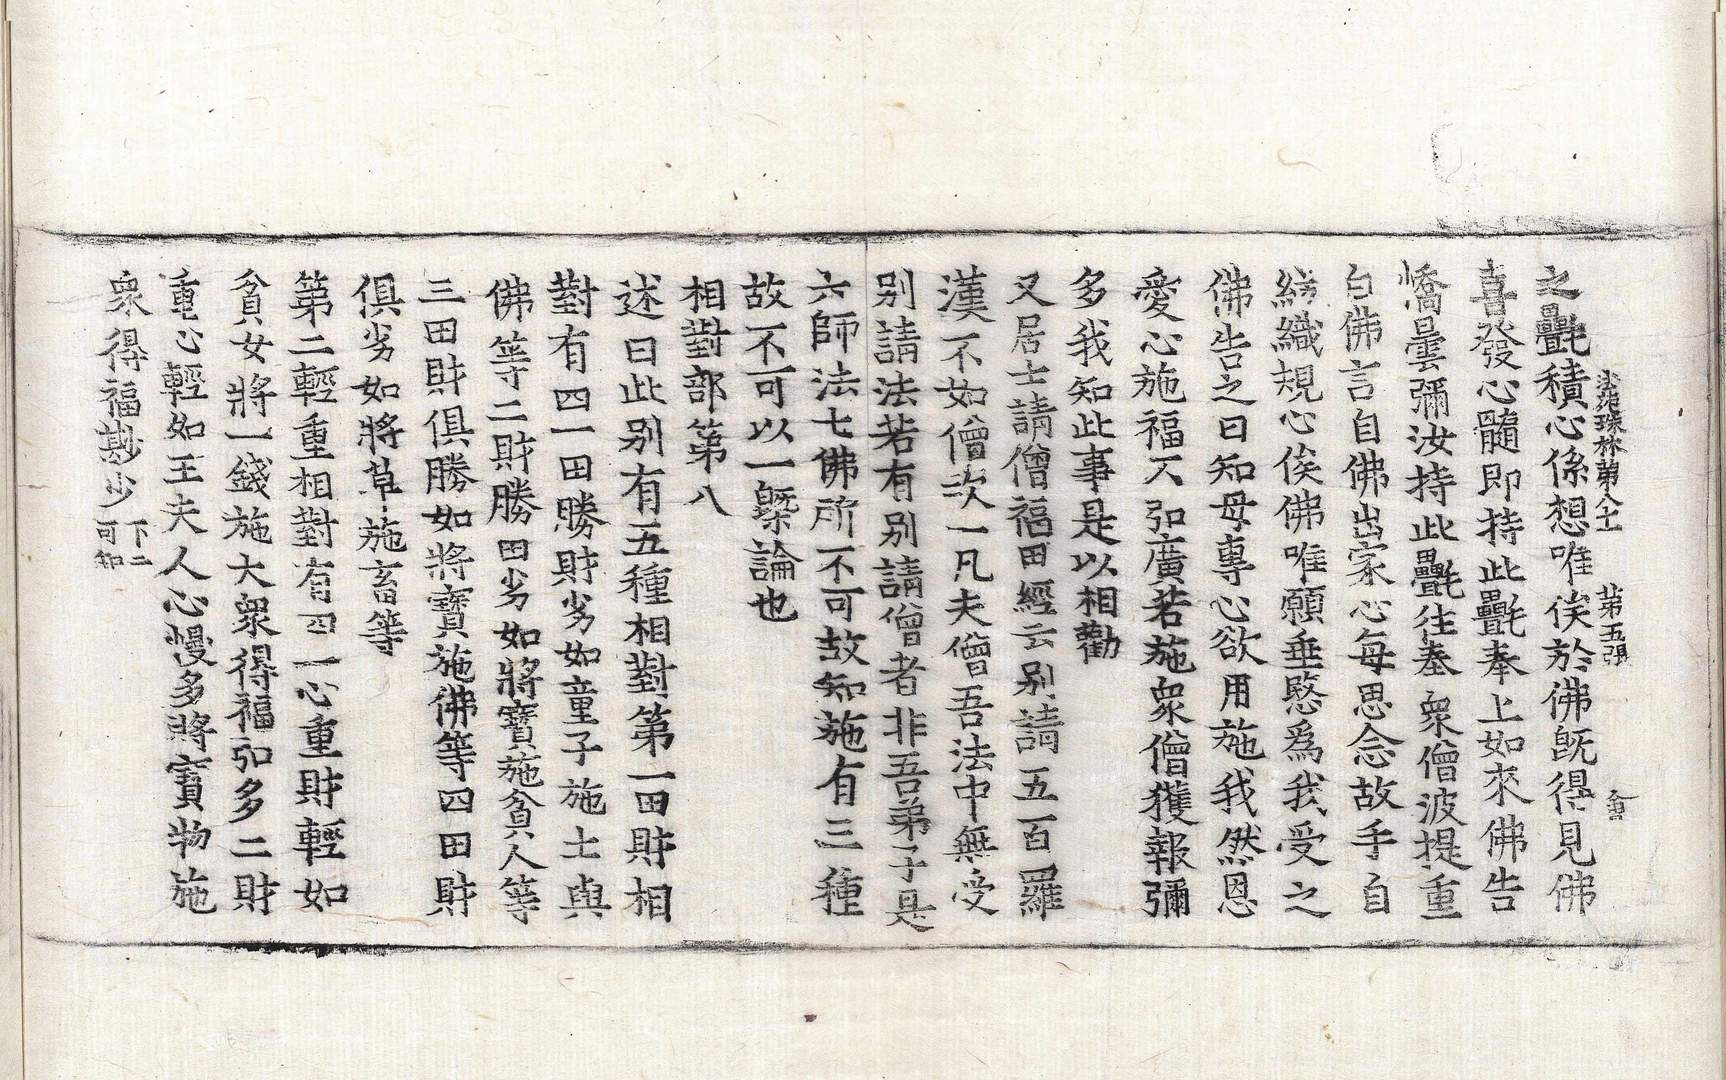 法苑珠林第八十一　第五張　會
之㲲積心係想唯俟於佛旣得見佛
喜發心髓即持此㲲奉上如來佛告
憍曇彌汝持此㲲往奉衆僧波提重
白佛言自佛出家心每思念故手自
紡織規心俟佛唯願垂愍爲我受之
佛告之曰知母專心欲用施我然恩
愛心施福不弘廣若施衆僧獲報彌
多我知此事是以相勸
又居士請僧福田經云別請五百羅
漢不如僧次一凡夫僧吾法中無受
別請法若有別請僧者非吾弟子是
六師法七佛所不可故知施有三種
故不可以一槩論也
相對部第八
述曰此別有五種相對第一田財相
對有四一田勝財劣如童子施土與
佛等二財勝田劣如將寶施貧人等
三田財俱勝如將寶施佛等四田財
俱劣如將草施畜等
第二輕重相對有四一心重財輕如
貧女將一錢施大衆得福弘多二財
重心輕如王夫人心慢多將寶物施
衆得福尠少下二可知